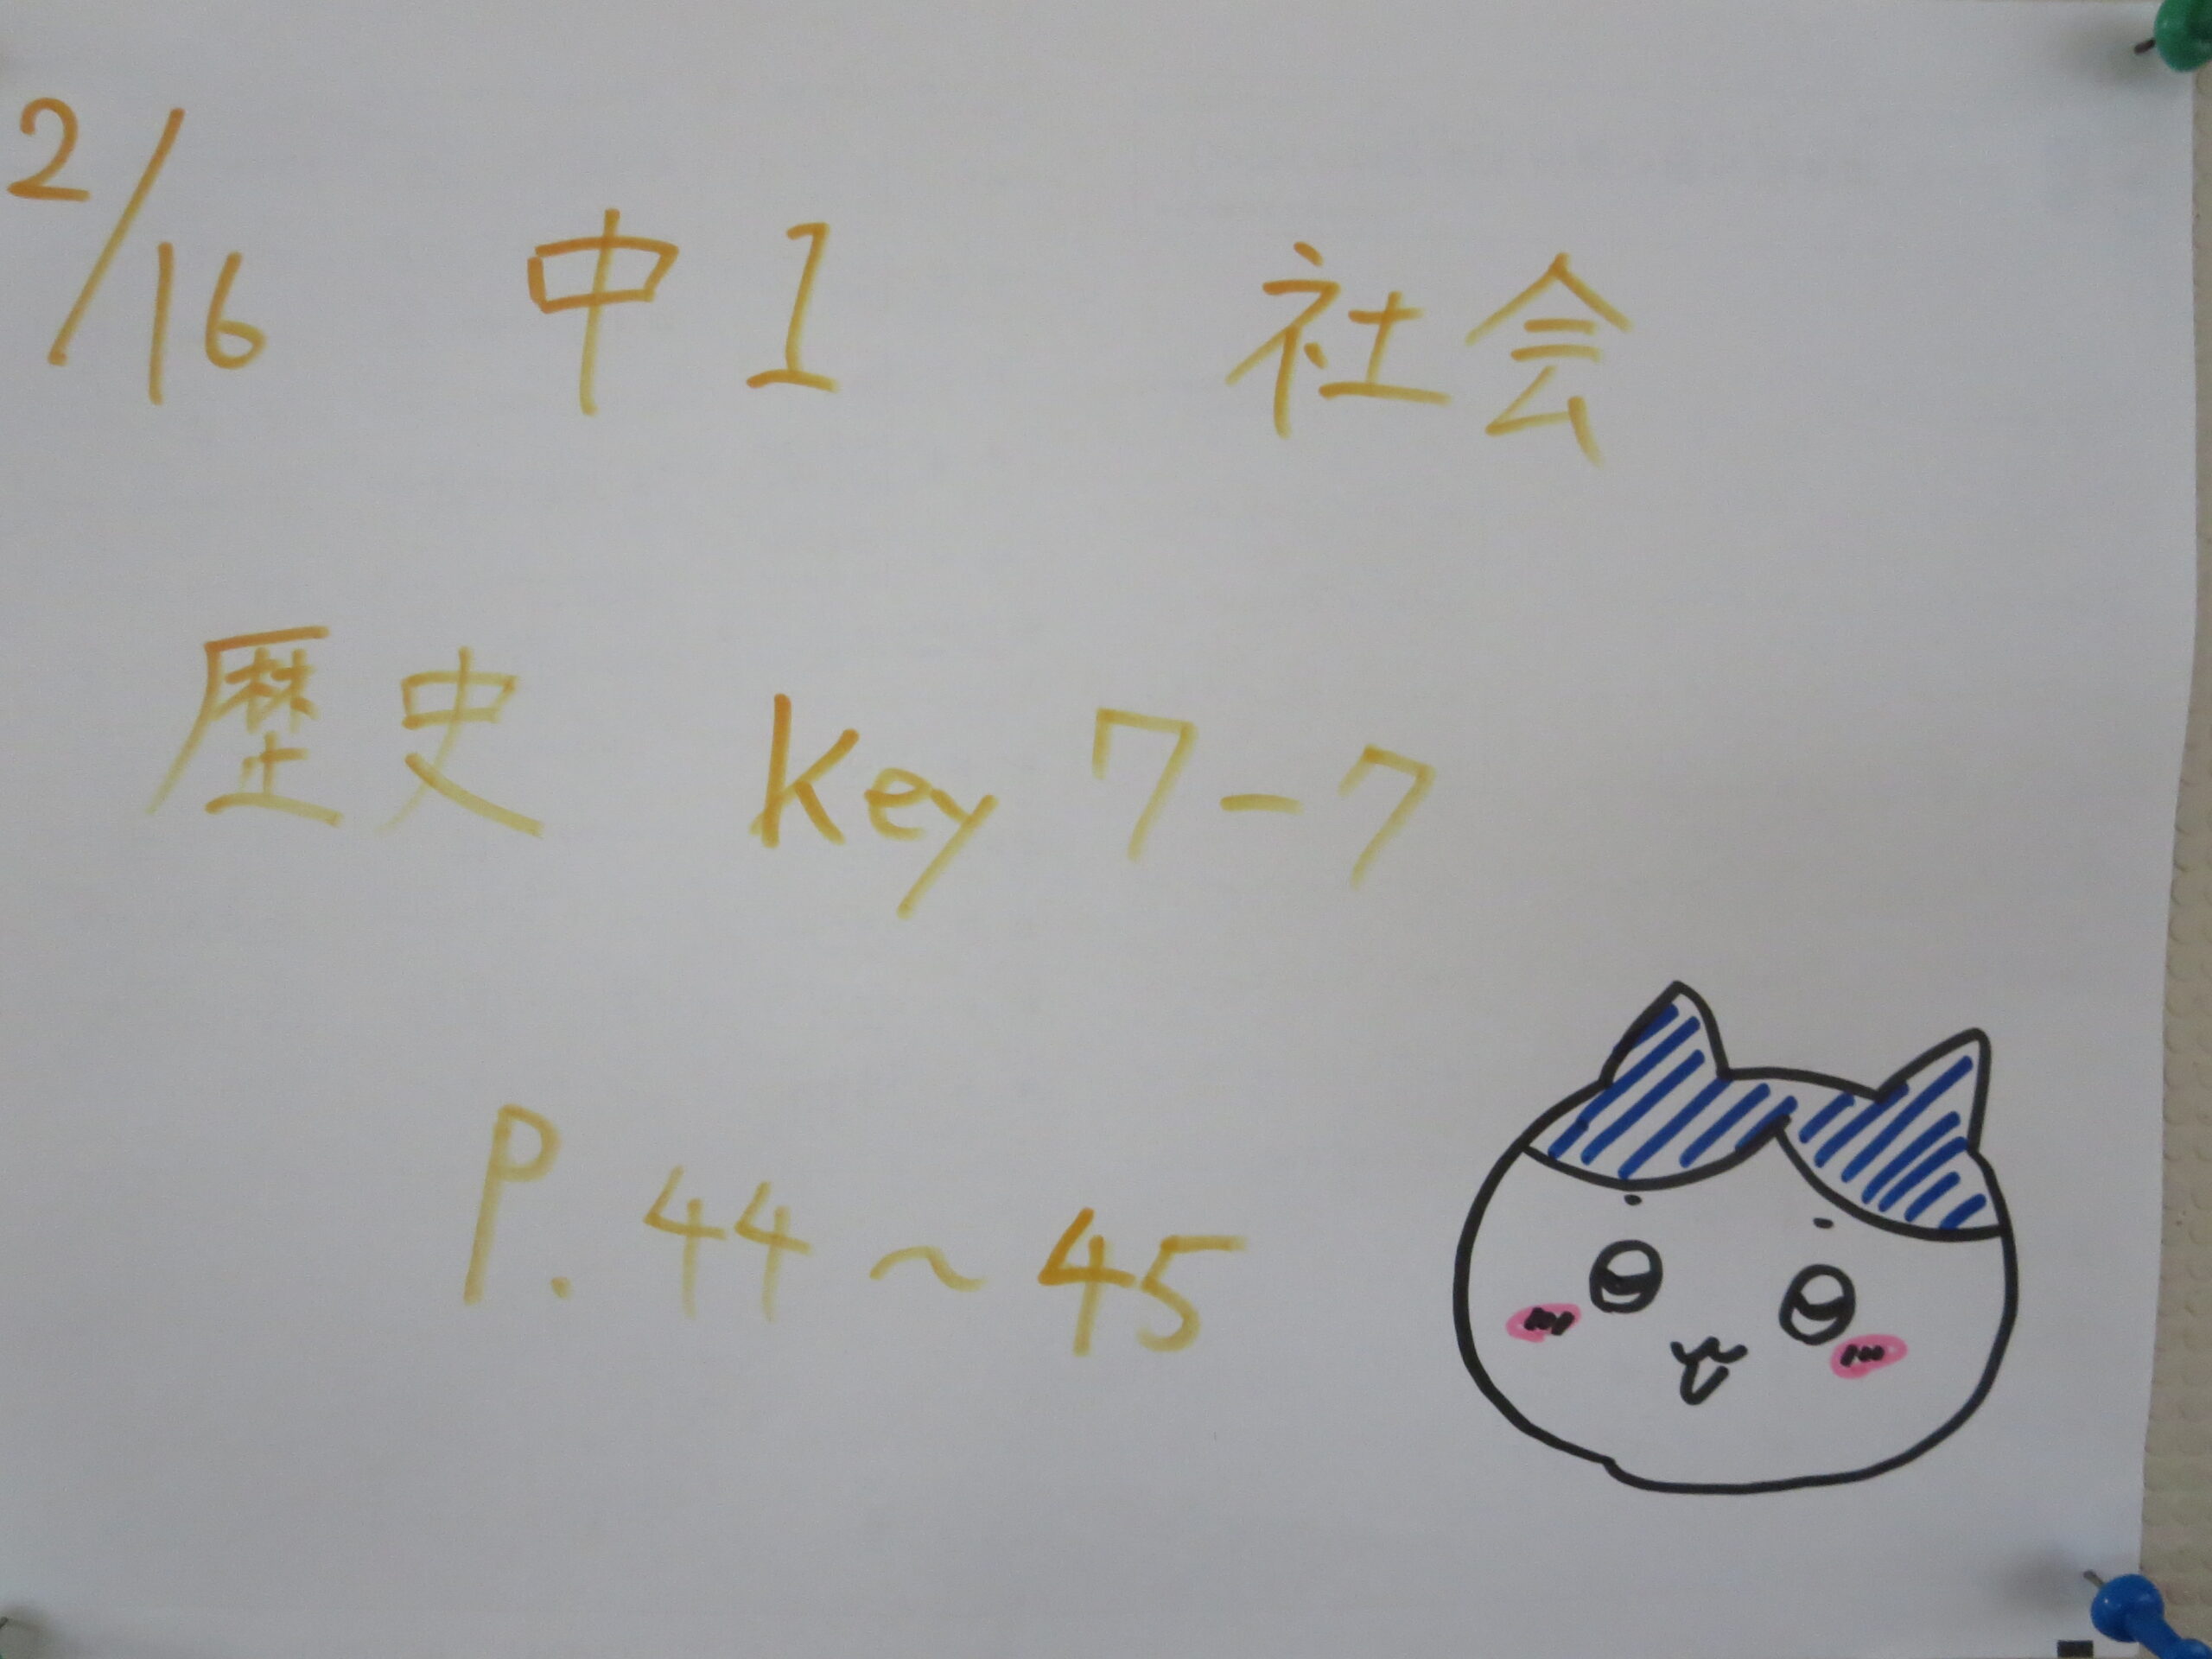 2/16 中1 社会
歴史 Key 7-7
P.44～45